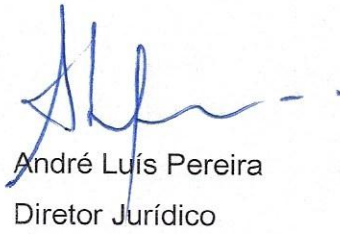 André Luís Pereira
Diretor Jurídico